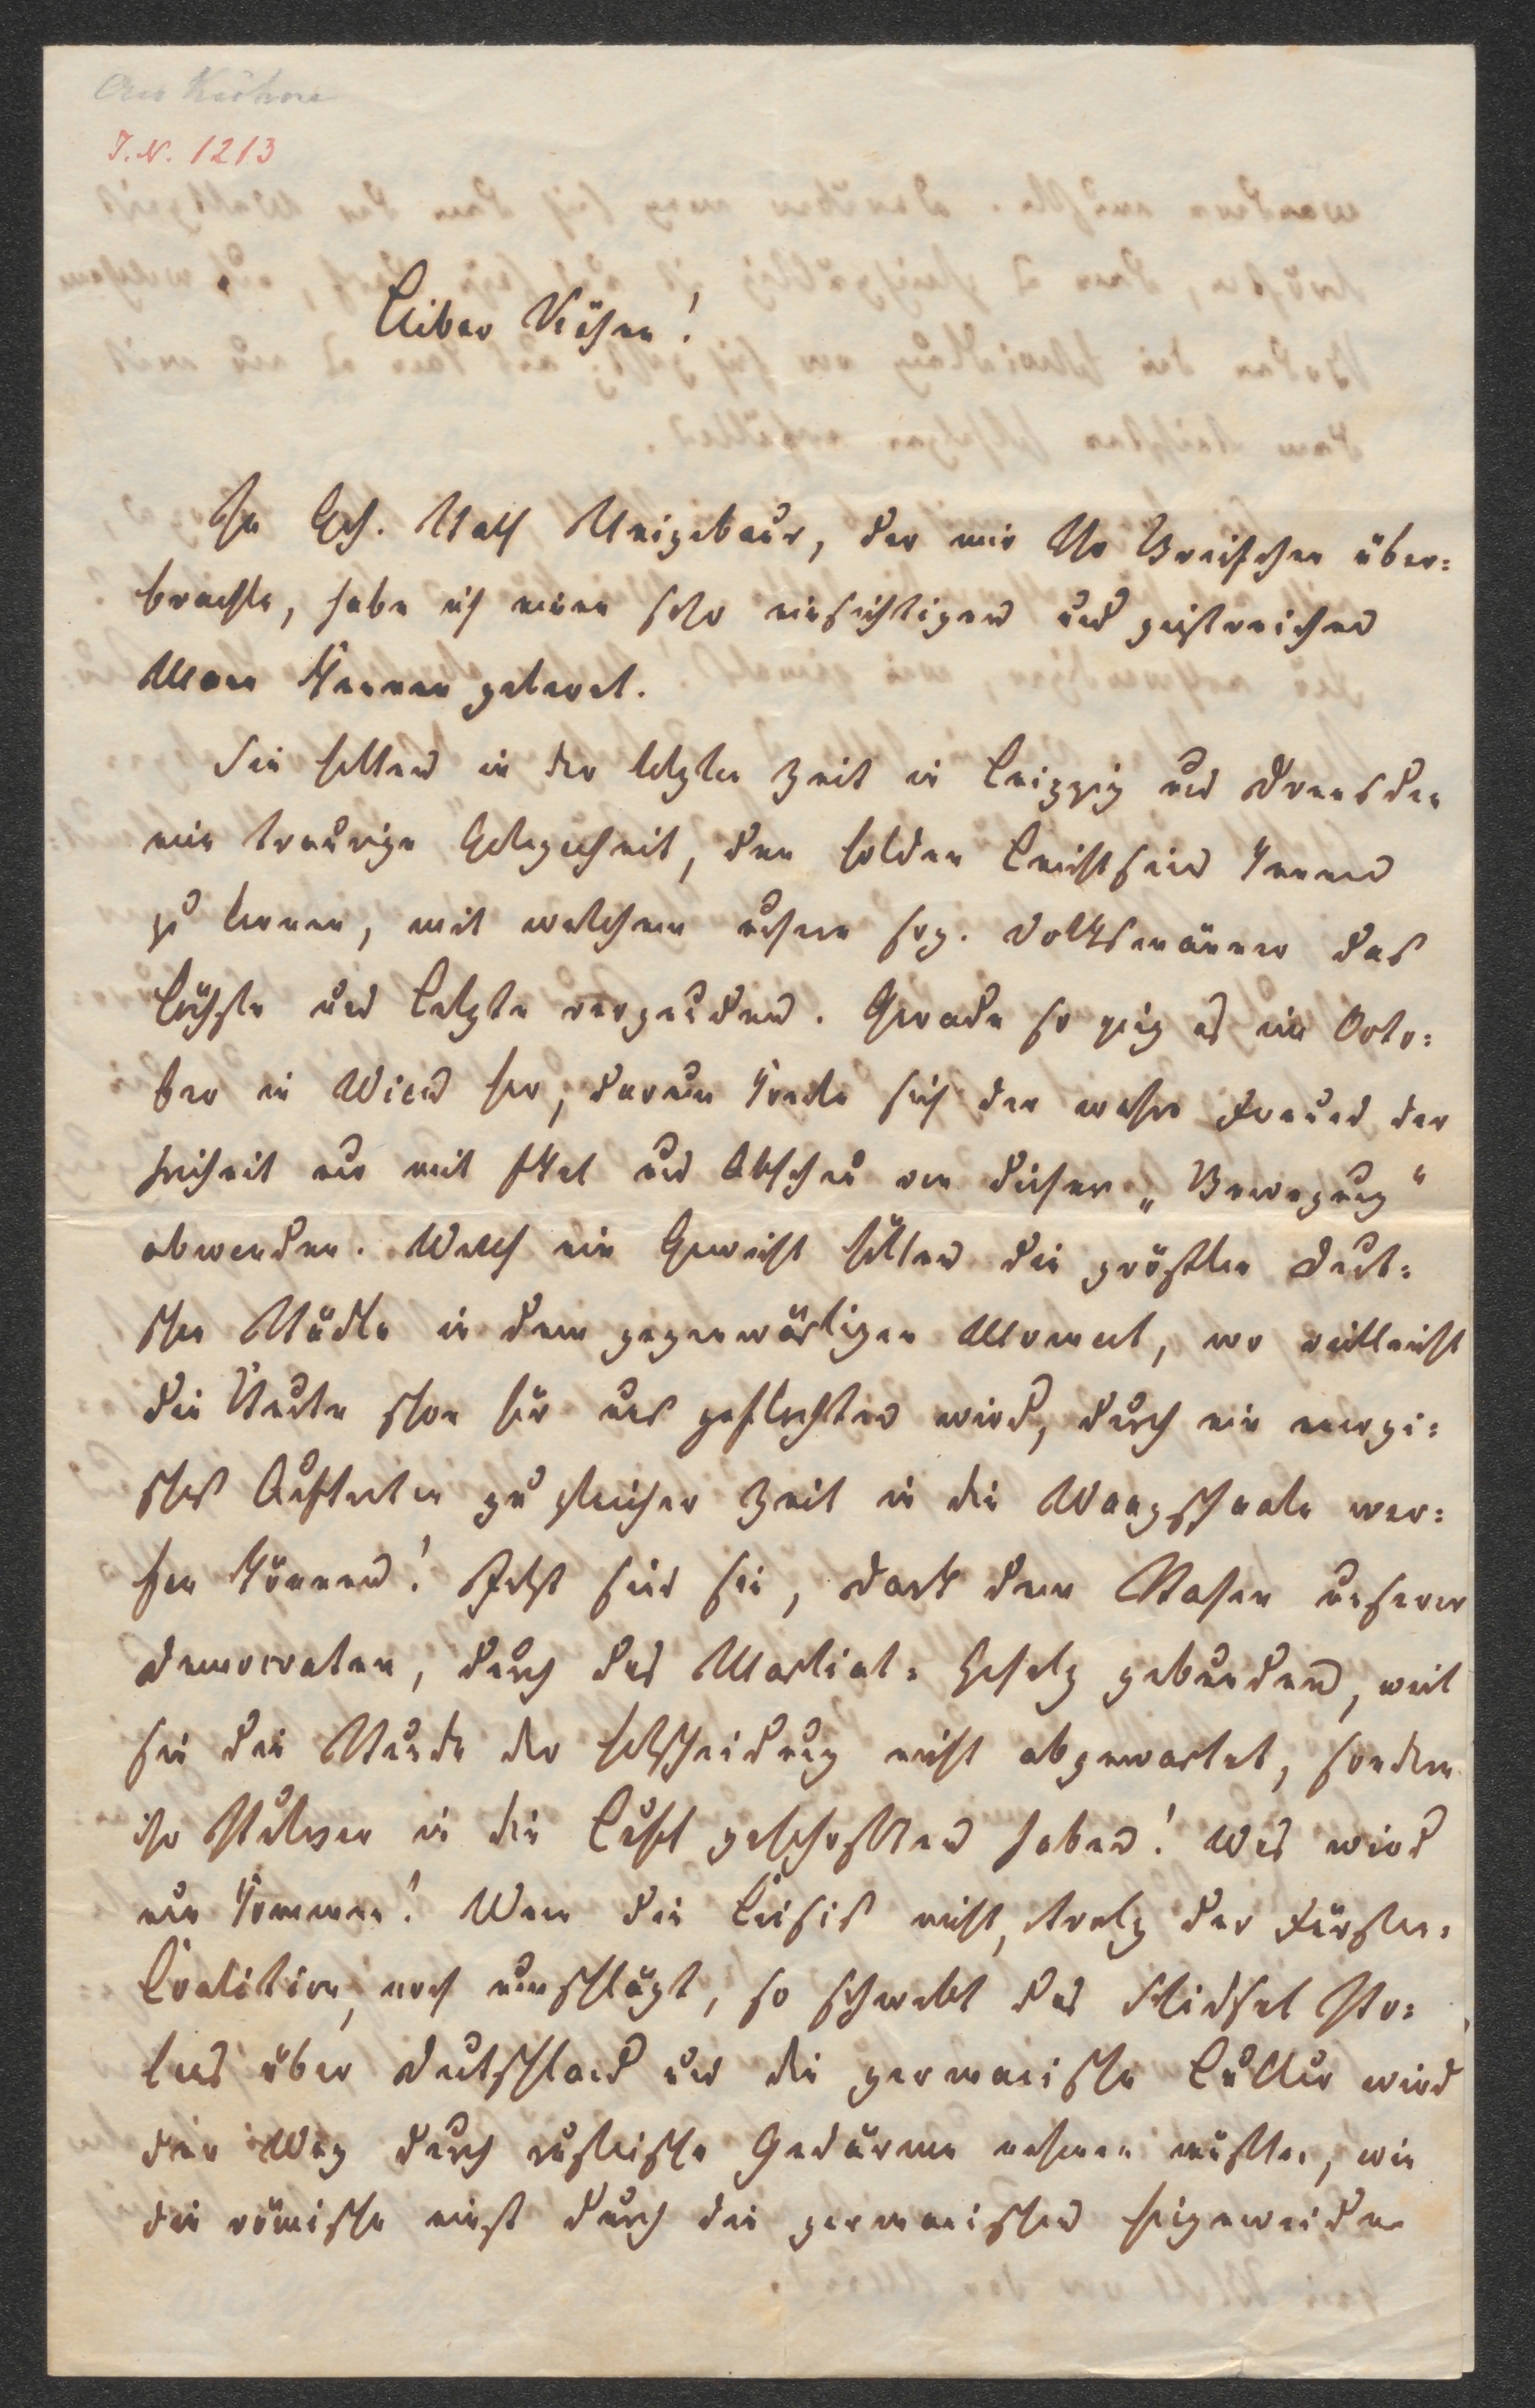 An Kühne
I. N. 1213
Lieber Kühne!
In Geh. Rath Neigebaur, der mir Ihr Briefchen über=
brachte, habe ich einen sehr einsichtigen und geistreichen
Mann kennen gelernt.
Sie hatten in der letzten Zeit in Leipzig und Dresden
eine traurige Gelegenheit, den Leichtsinn kennen
zu lernen, mit welchem unsere sog. Volksmänner das
Höchste und Letzte vergeuden. Gerade so ging es im Octo=
ber in Wien her, darum konnte sich der wahre Freund der
Freiheit nur mit Ekel und Abscheu von dieser „Bewegung"
abwenden. Welch ein Gewicht hätten die größten deut=
schen Städte in dem gegenwärtigen Moment, wo vielleicht
die Knute schon für uns geflochten wird, durch ein energi=
sches Auftreten zu gleicher Zeit in die Waagschaale wer=
fen können! Jetzt sind sie, Dank dem Rasen unserer
Democraten, durch das Martial=Gesetz gebunden, weil
sie die Stunde der Entscheidung nicht abgewartet, sondern
ihr Pulver in die Luft geschossen haben! Was wird
nun kommen! Wenn die Crisis nicht, trotz der Fürsten=
Coalition, noch umschlägt, so schwebt das Schicksal Po=
lens über Deutschland und die germanische Cultur wird
den Weg durch russische Gedärme nehmen müssen, wie
die römische einst durch die germanischen Eingeweide